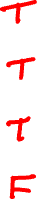 T
T
T
F